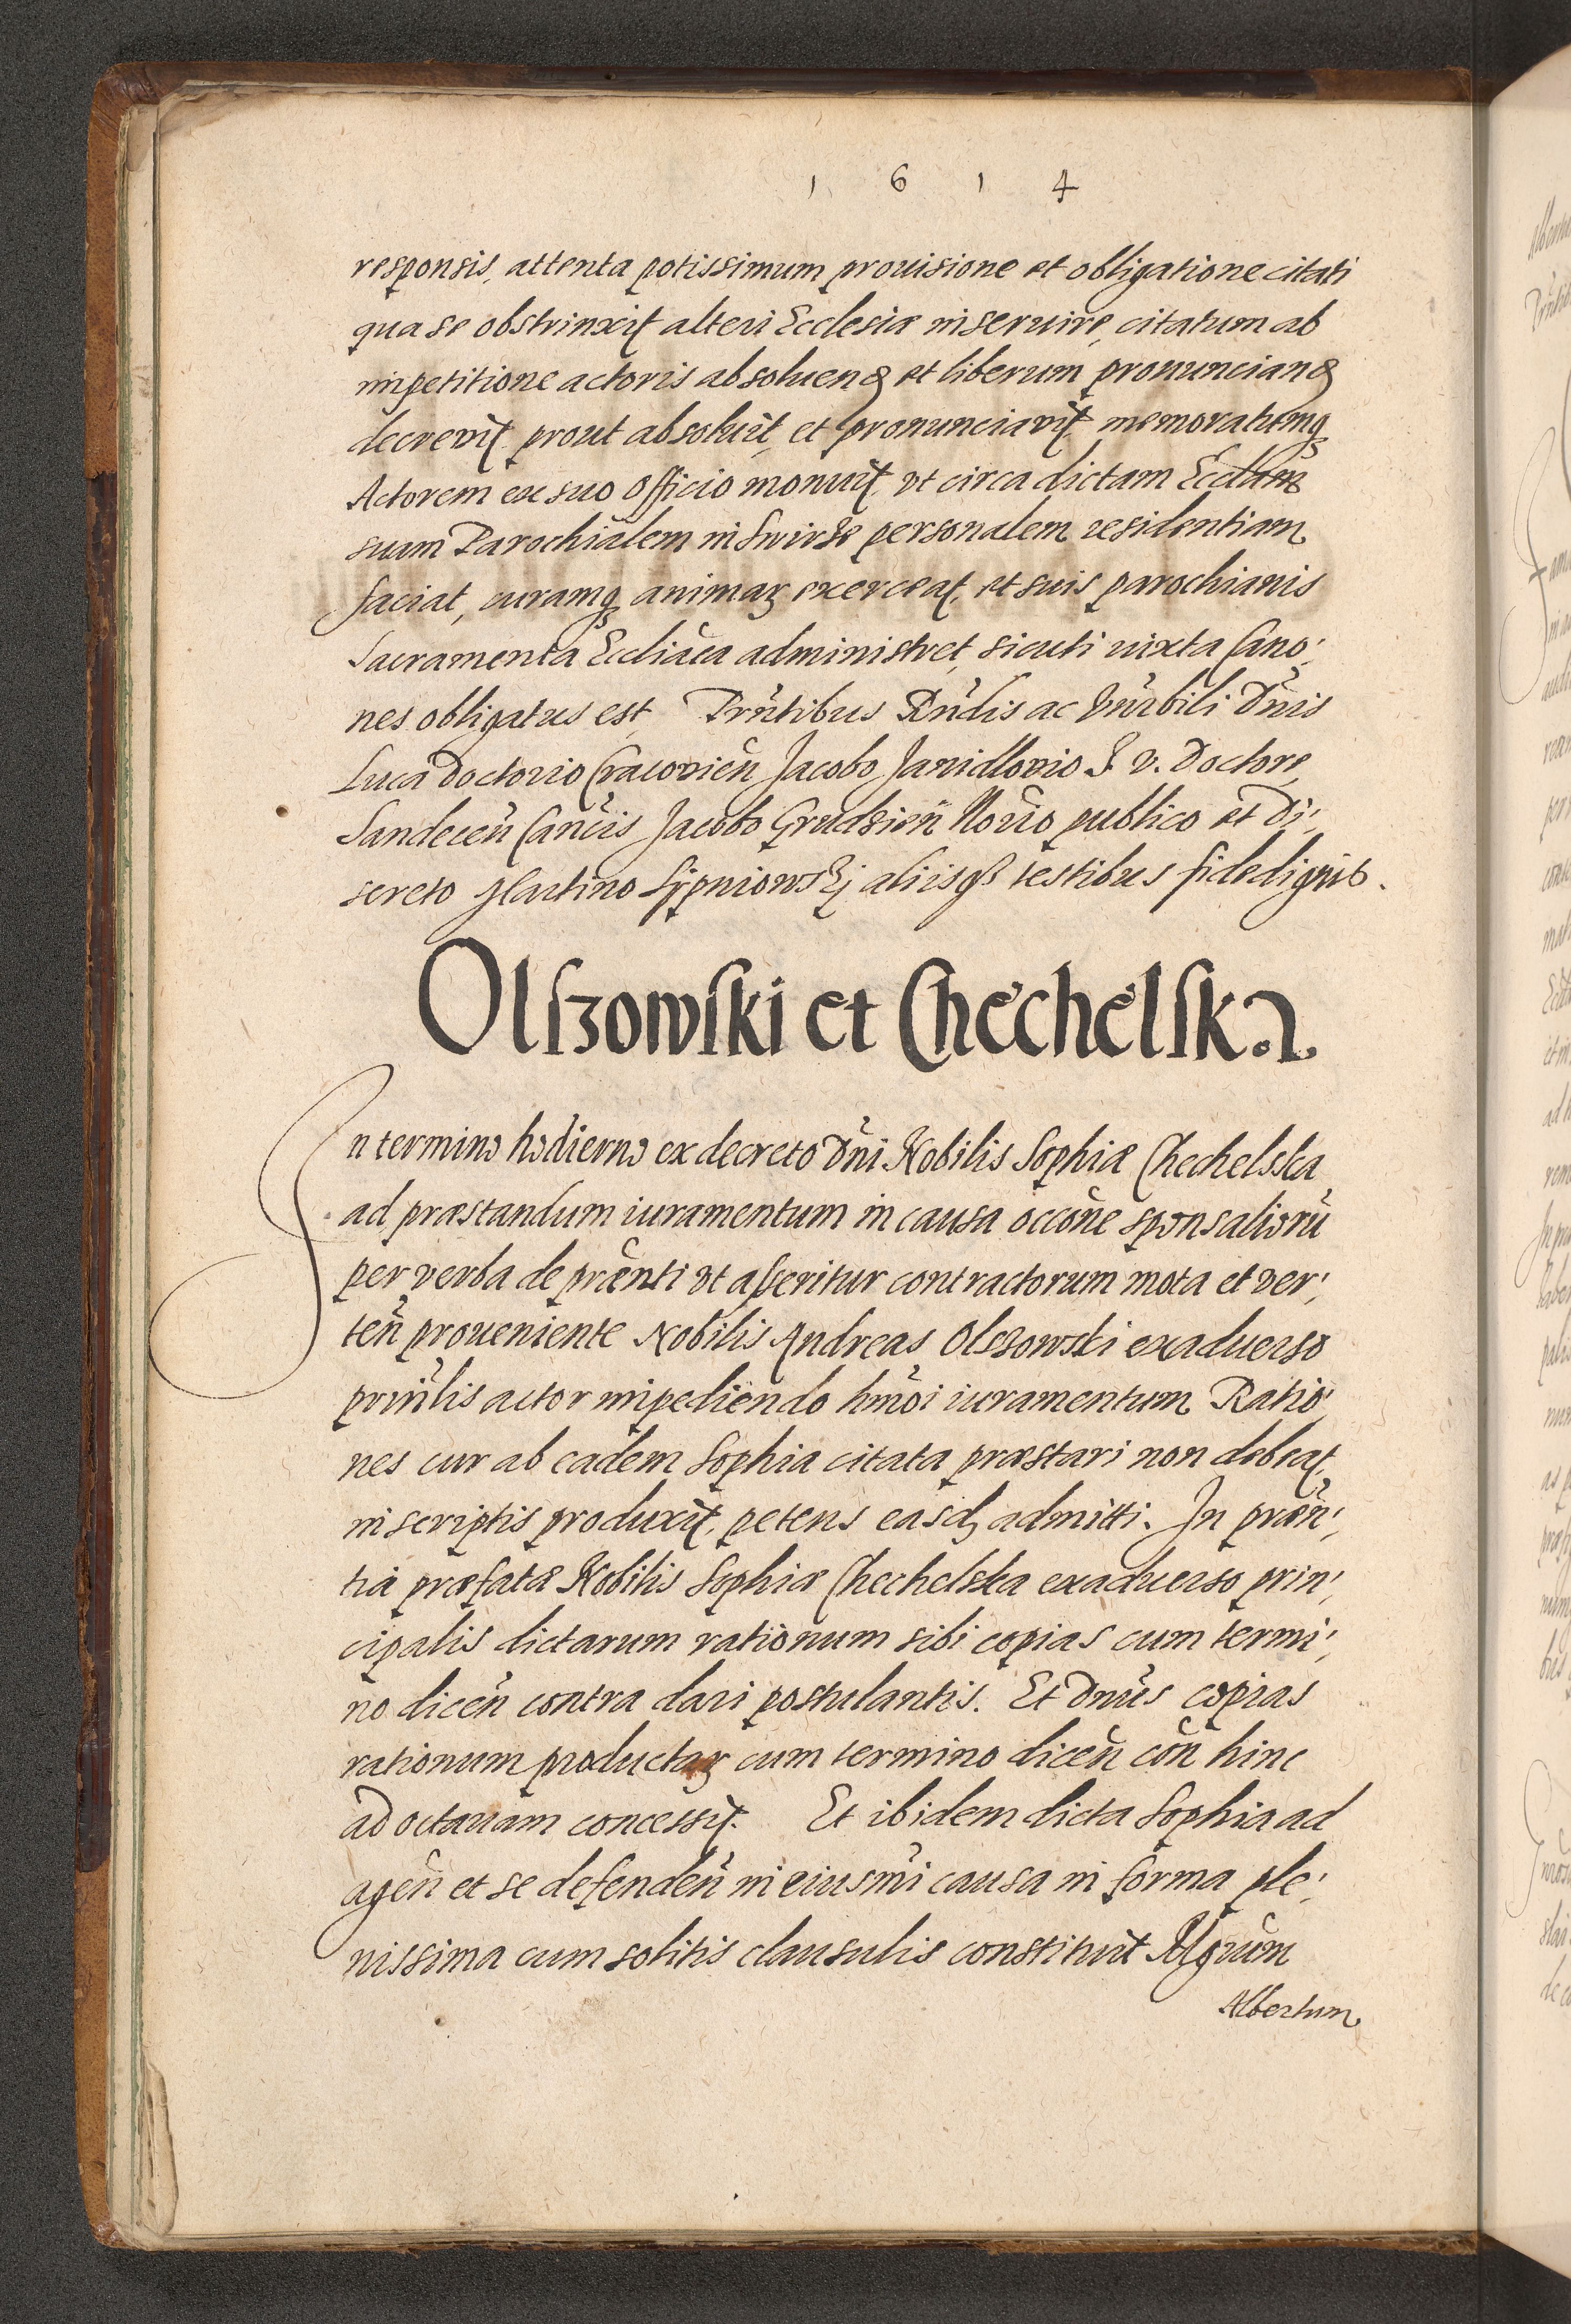 1 6 1 4
responsis, attenta potissimum prouisione et obligatione citati
qua se obstrinxit alteri Ecclesiæ inseruire, citatum ab
impetitione actoris absoluend et liberum pronunciand
decrevit prout absoluit, et pronunciavit, memoratumq3
Actorem ex suo officio monuit, vt circa dictam Eccl̃am
suam Parochialem in Swirze personalem residentiam
faciat, curamq3 animaꝝ exerceat, et suis parochianis
Sacramenta Eccliãca administret, sicuti iuxta Cano:
nes obligatus est, Prñtibus Rñdis ac Vnrbili Dñis
Luca Doctorio Cracovien̄ Jacobo Janidlovio J. V. Doctore,
Sandecen̄ Canc̃is Jacobo Grudzien̄ Notrĩo publico et Di:
screto Martino Sypniowskj aliisqʒ testibus fidedignis.
Olszowski et Chechelska.
In termino hodierno ex decreto Dñi Nobilis Sophiæ Chechelska
ad præstandum iuramentum in causa occõne sponsaliorũ
per verba de præñti vt asseritur contractorum mota et ver:
ten̄ proueniente Nobilis Andreas Olszowski exaduerso
prinl̃is actor impediendo hmõi iuramentum Ratio:
nes cur ab eadem Sophia citata præstari non debeat,
in scriptis produxit, petens easdʒ admitti. In præñ:
tia præfatæ Nobilis Sophiæ Chechelska exaduerso prin:
cipalis dictarum rationum sibi copias cum termi:
no dicen̄ contra dari postulantis. Et Dñus copias
rationum productaꝝ cum termino dicen̄ con̄ hinc
ad octauam concessit. Et ibidem dicta Sophia ad
agen̄ et se defenden̄ in eiusmi causa in forma ple:
nissima cum solitis clausulis constituit Mgrũm
Albertum